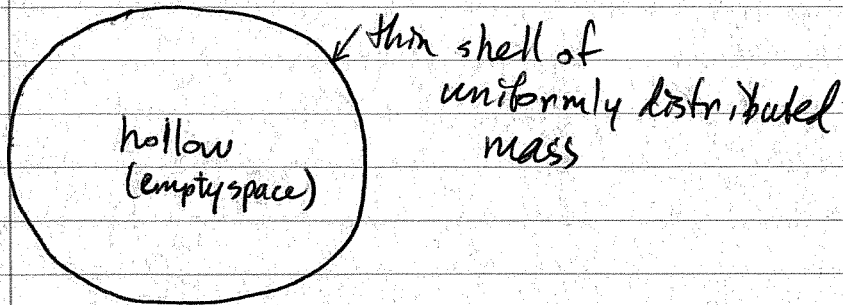 thin shell of
uniformly distributed
mass
hollow
(empty space)